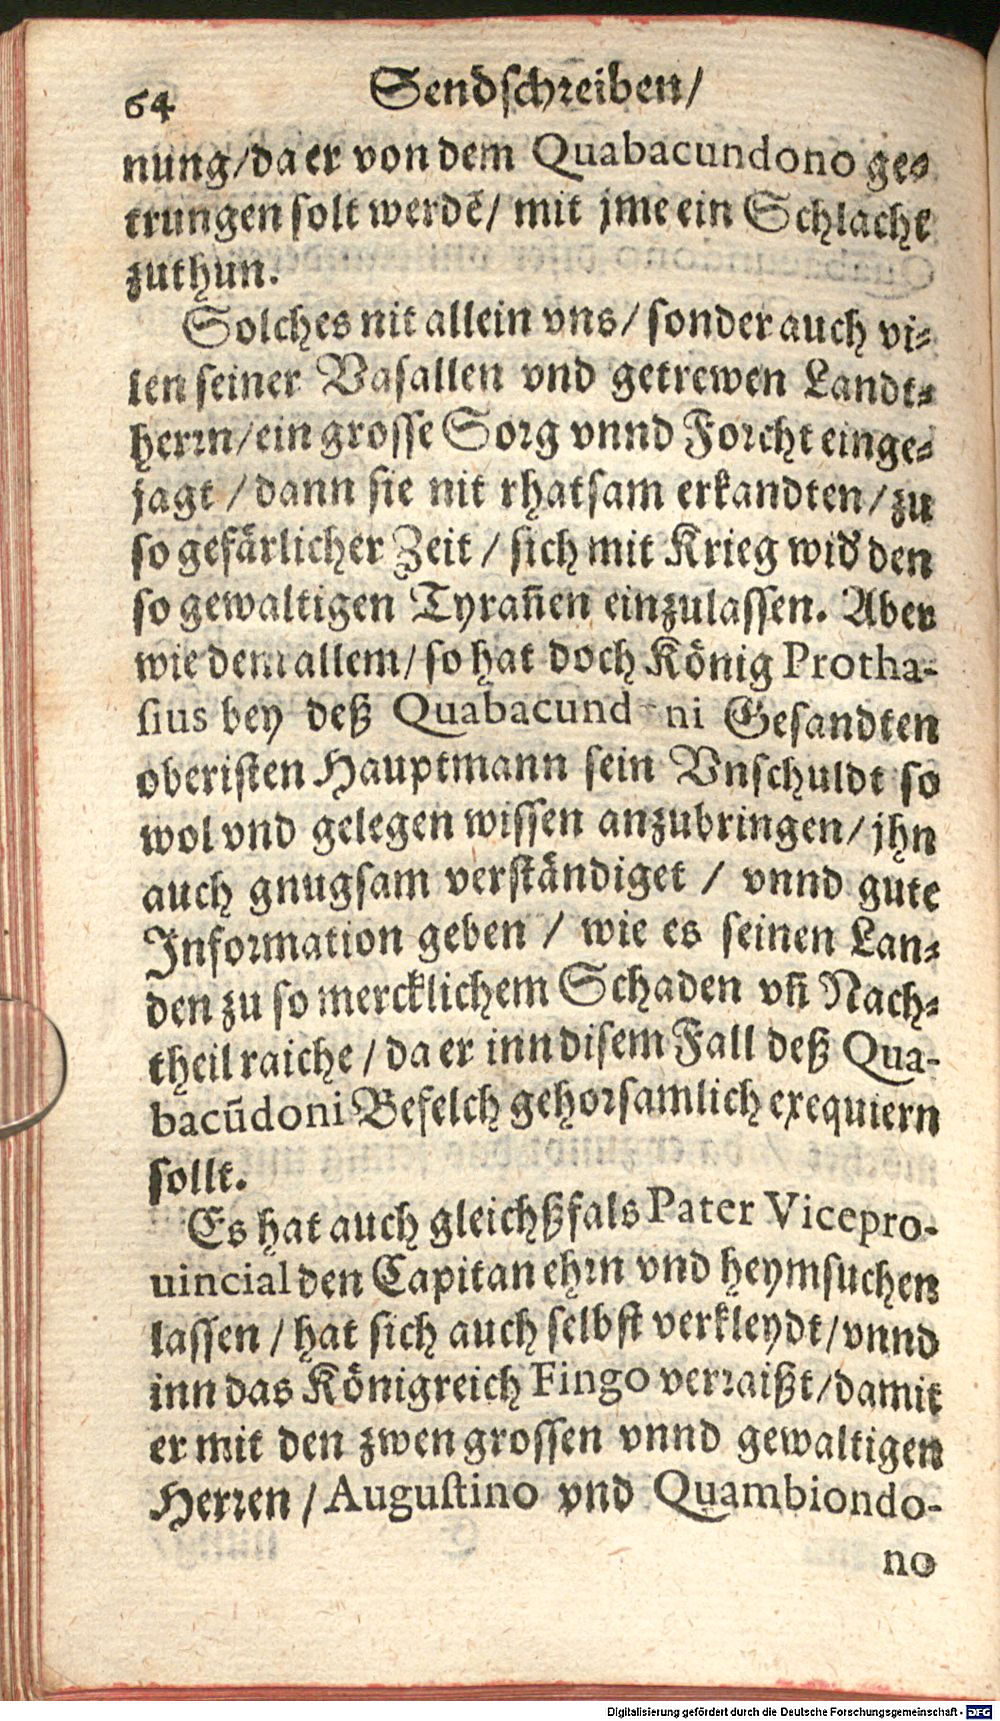 64 Sendschreiben/
nung/da er von dem Quabacundono ge-
trungen solt werdē/ mit jme ein Schlacht
zuthun.
Solches nit allein vns/ sonder auch vi-
len seiner Vasallen vnd getrewen Landt-
herrn/ein grosse Sorg vnnd Forcht einge-
jagt / dann sie nit rhatsam erkandten/zu
so gefärlicher Zeit / sich mit Krieg wid̕ den
so gewaltigen Tyrañen einzulassen. Aber
wie dem allem/ so hat doch König Protha-
sius bey deß Quabacund ni Gesandten
oberisten Hauptmann sein Vnschuldt so
wol vnd gelegen wissen anzubringen/ jhn
auch gnugsam verständiget / vnnd gute
Information geben / wie es seinen Lan-
den zu so mercklichem Schaden vñ Nach-
theil raiche / da er inn disem Fall deß Qua-
bacūdoni Befelch gehorsamlich exequiern
sollt.
Es hat auch gleichßfals Pater Vicepro-
uincial den Capitan ehrn vnd heymsuchen
lassen / hat sich auch selbst verkleydt/vnnd
inn das Königreich Fingo verraißt/damit
er mit den zwen grossen vnnd gewaltigen
Herren / Augustino vnd Quambiondo-
no
Digitalisierung gefördert durch die Deutsche Forschungsgemeinschaft - DFG